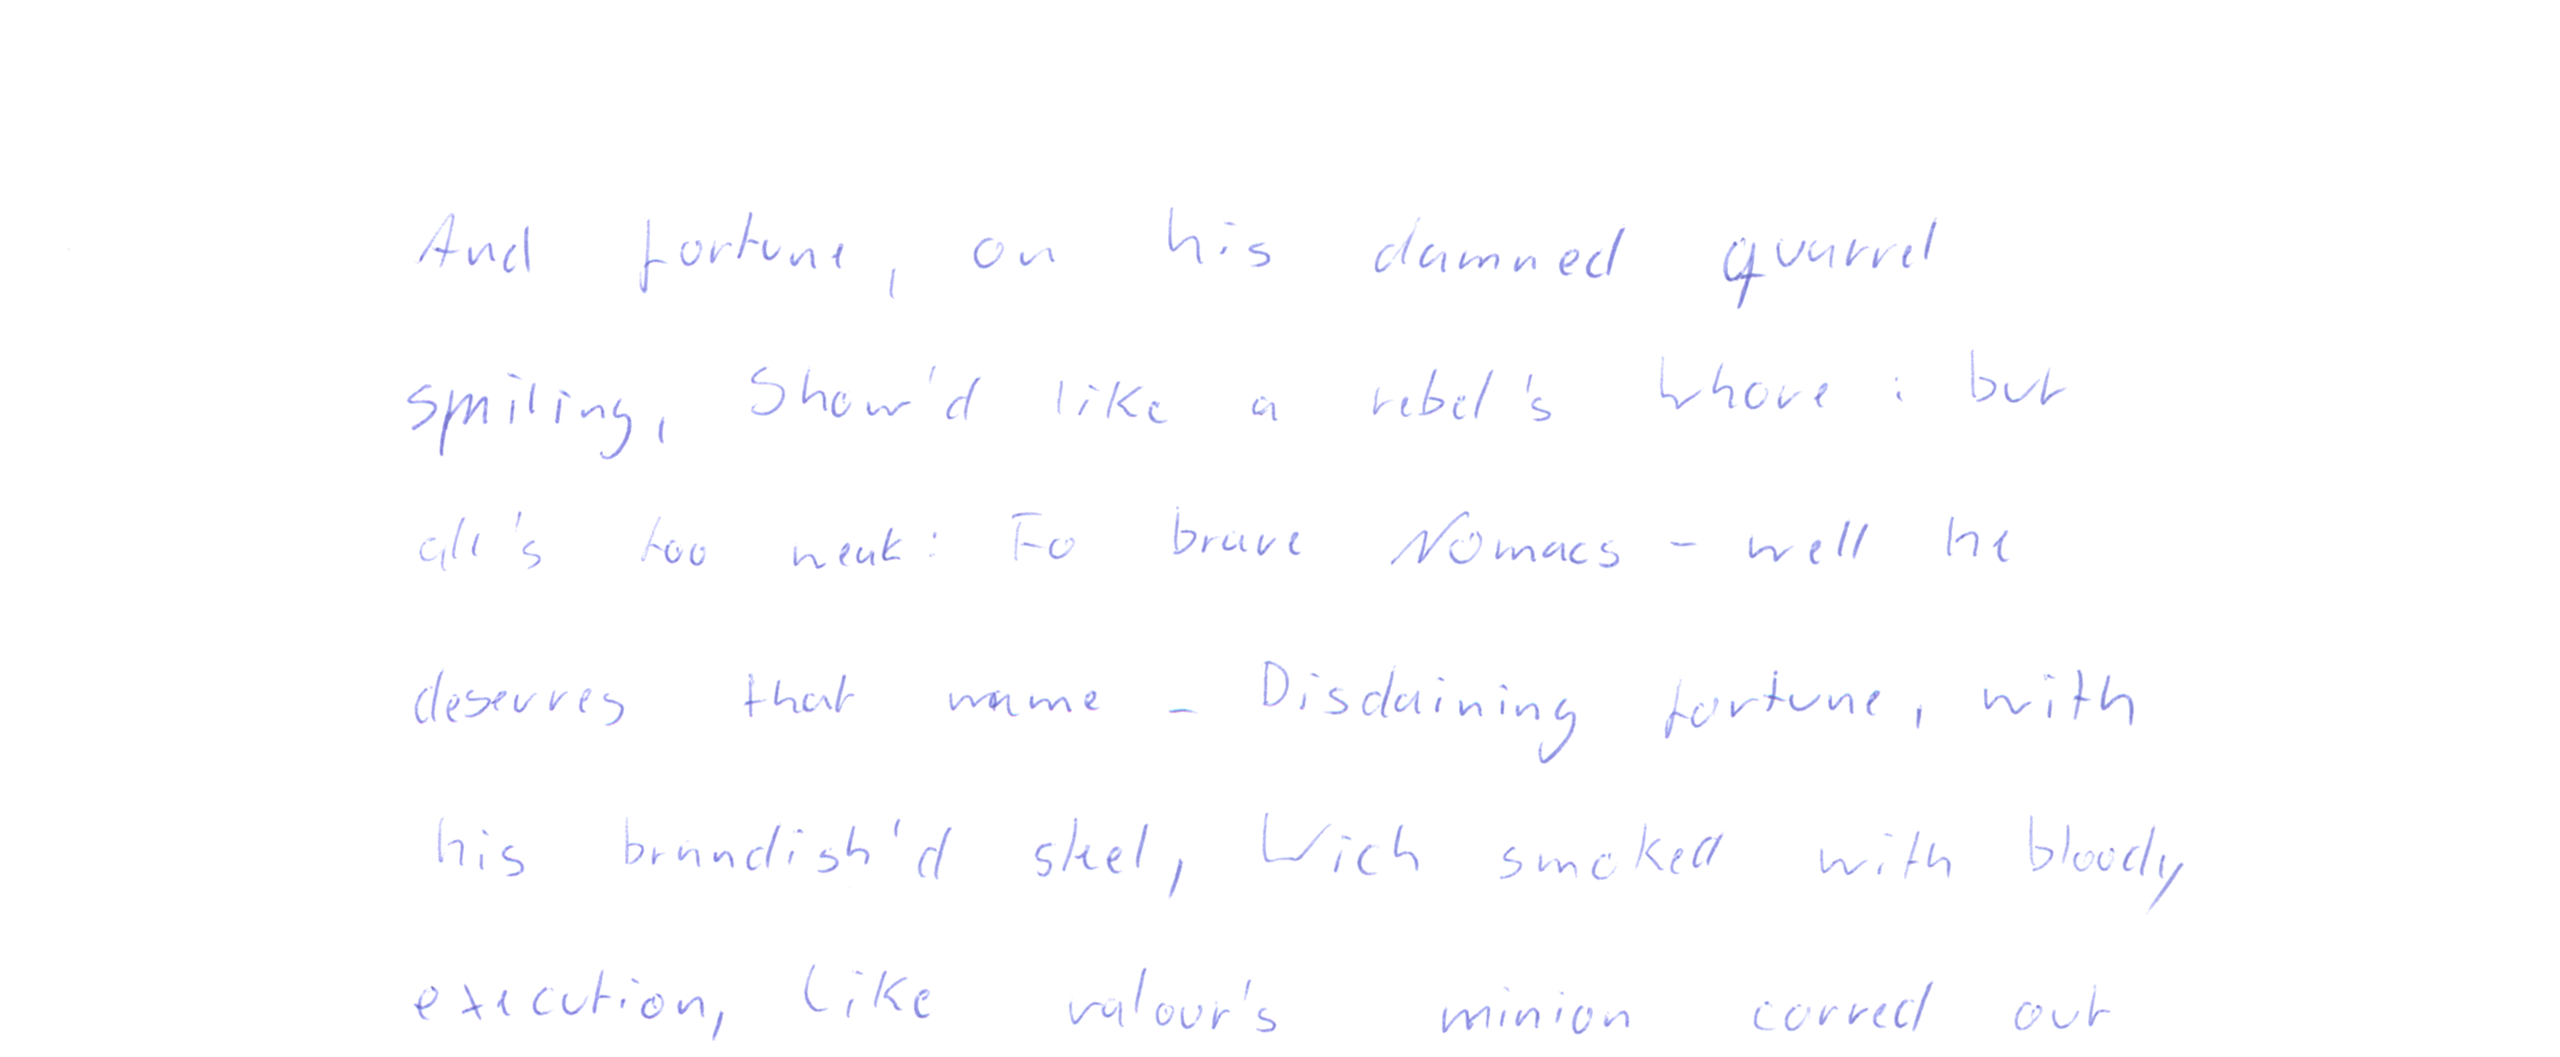 And fortune, on his damned quarrel
smiling, Show'd like a rebel's whore : but
all's too weak : Fo brave Nomacs - well he
deserves that name - Disdaining fortune, with
his brandish'd steel, Wich smoked with bloody
execution, Like valour's minion carved out